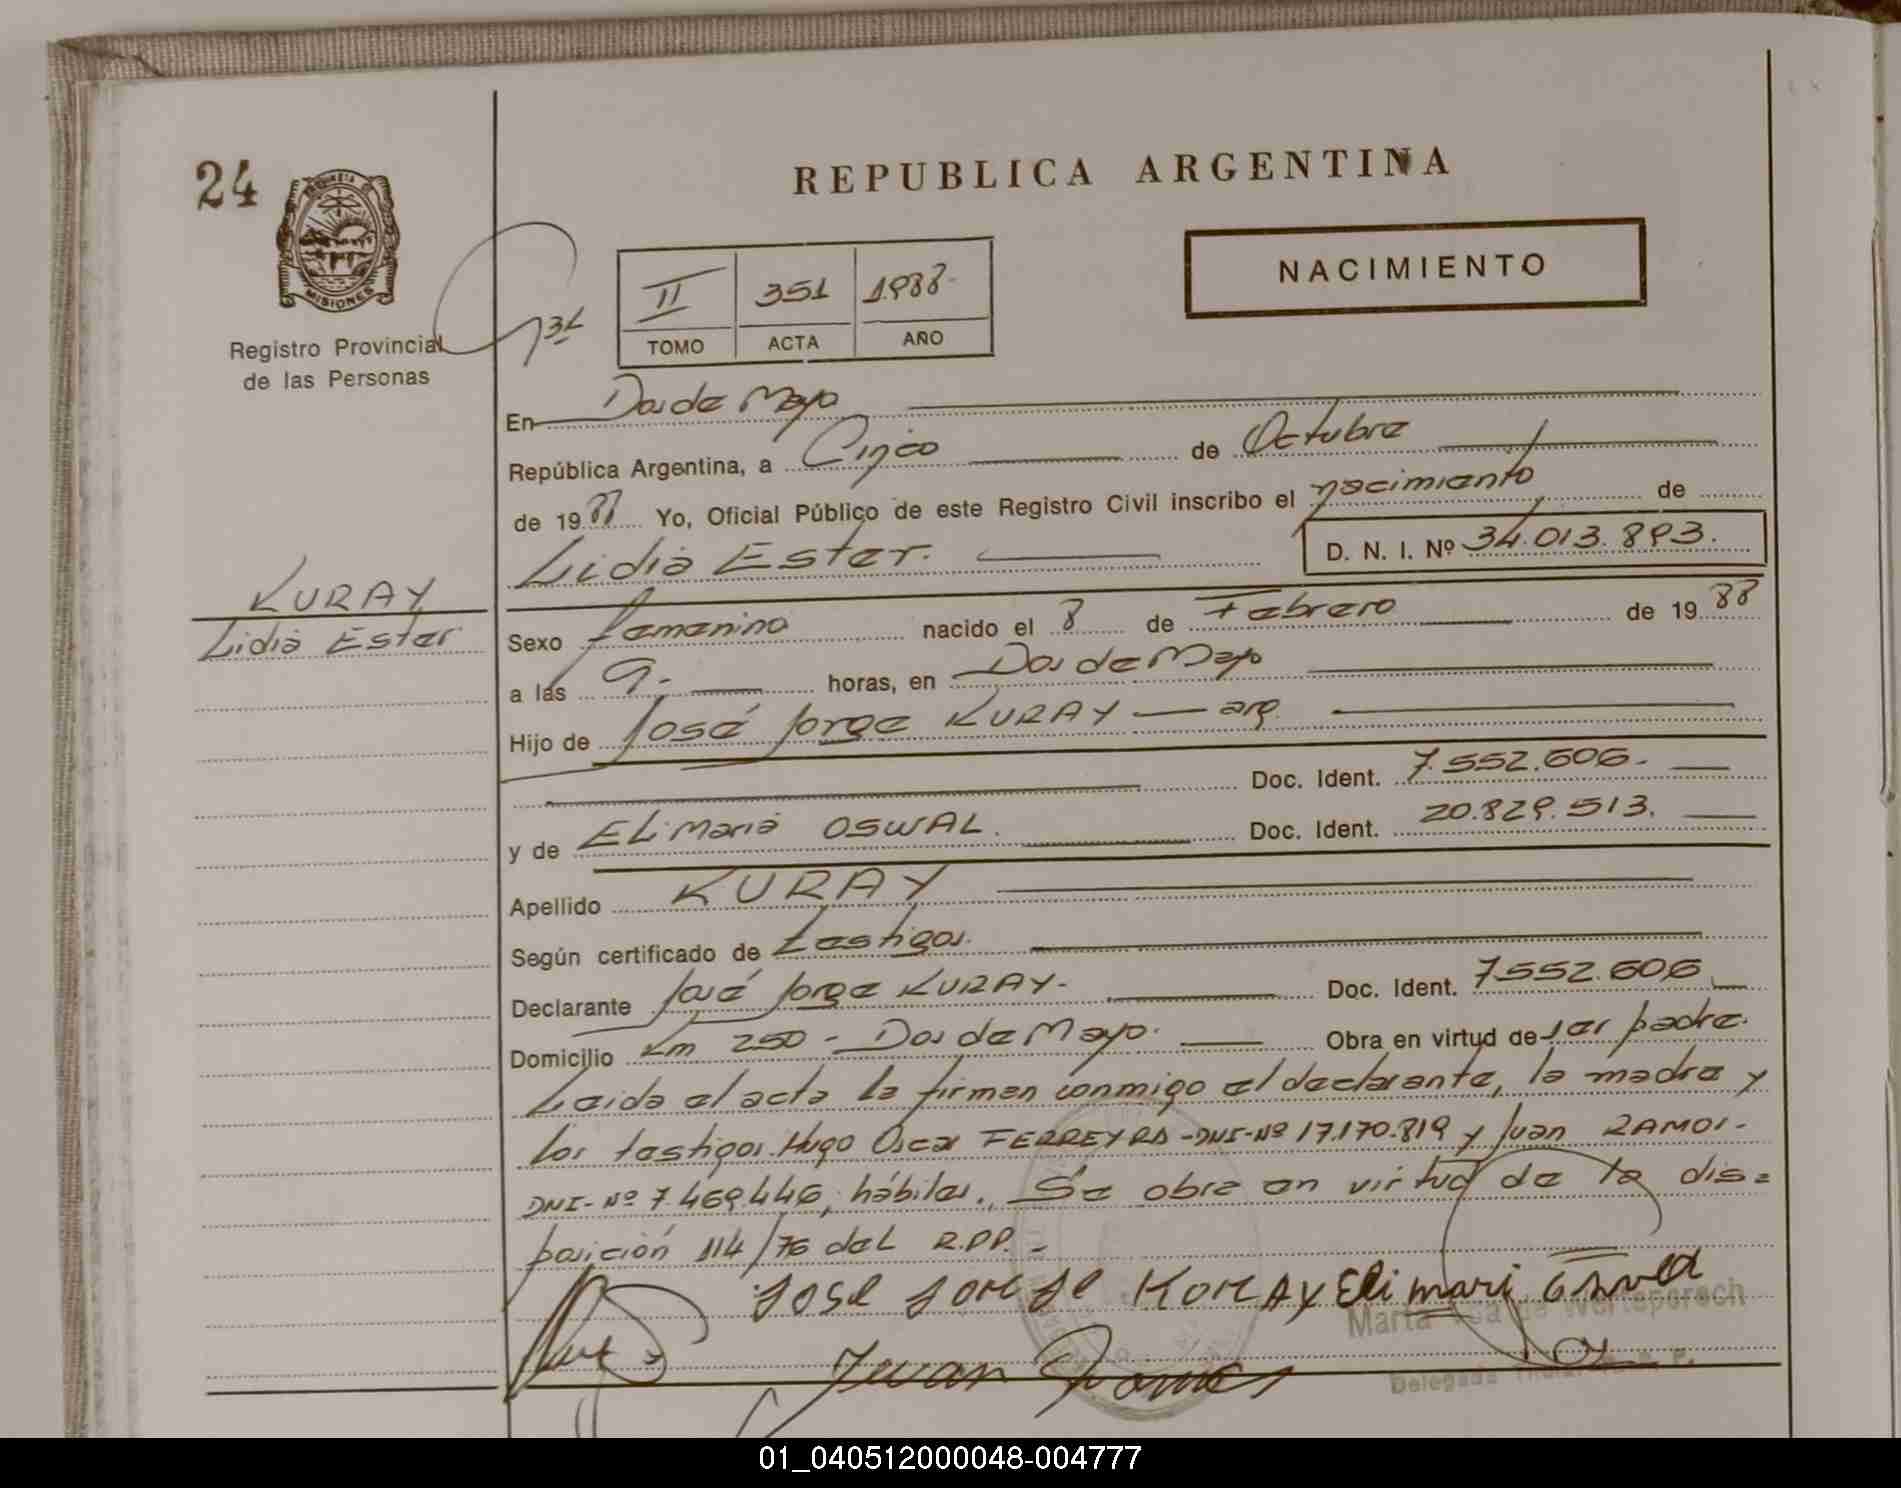 24
REPUBLICA ARGENTINA
PROVINCIA DE
MISIONES
Registro Provincial
de las Personas
II 351 1988.-
TOMO ACTA AÑO
NACIMIENTO
En Dos de Mayo
República Argentina, a Cinco de Octubre
de 1988 Yo, Oficial Público de este Registro Civil inscribo el nacimiento de
Lidia Ester. D. N. I. Nº 34.013.893.
KURAY
Lidia Ester
Sexo femenino nacido el 8 de Febrero de 1988
a las 9.- horas, en Dos de Mayo
Hijo de José Jorge KURAY — arg.
Doc. Ident. 7.552.606.-
y de ELi Maria OSWAL. Doc. Ident. 20.829.513.
Apellido KURAY
Según certificado de testigos.
Declarante José Jorge KURAY.- Doc. Ident. 7.552.606
Domicilio Km 250 - Dos de Mayo. Obra en virtud de ser padre.
Leida el acta la firman conmigo el declarante, la madre y
los testigos Hugo Oscar FERREYRA-DNI-Nº 17.170.819 y Juan RAMOS-
DNI-Nº 7.469.446, hábiles. Se obra en virtud de la dis=
posición 114/76 del R.P.P.-
JOSE JORJE KURAY Eli mari
Marta de
Juan
Delegada Titular
01_040512000048-004777